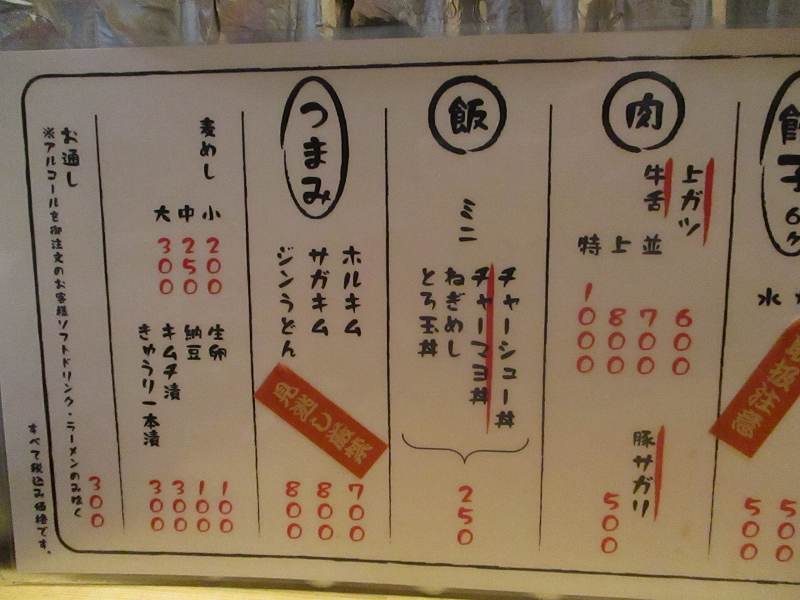 餃子
6ケ
水
取扱注意
500
500
肉
上ガツ
600
牛舌
並
700
上
800
特
1000
豚サガリ
500
飯
ミニ
チャーシュー丼
チャーマヨ丼
ねぎめし
とろ玉丼
250
つまみ
ホルキム
700
サガキム
800
ジンうどん
800
見逃し厳禁
麦めし
小
200
中
250
大
300
生卵
100
納豆
100
キムチ漬
300
きゅうり一本漬
300
お通し
※アルコールを御注文のお客様ソフトドリンク・ラーメンのみはく
300
すべて税込み価格です。